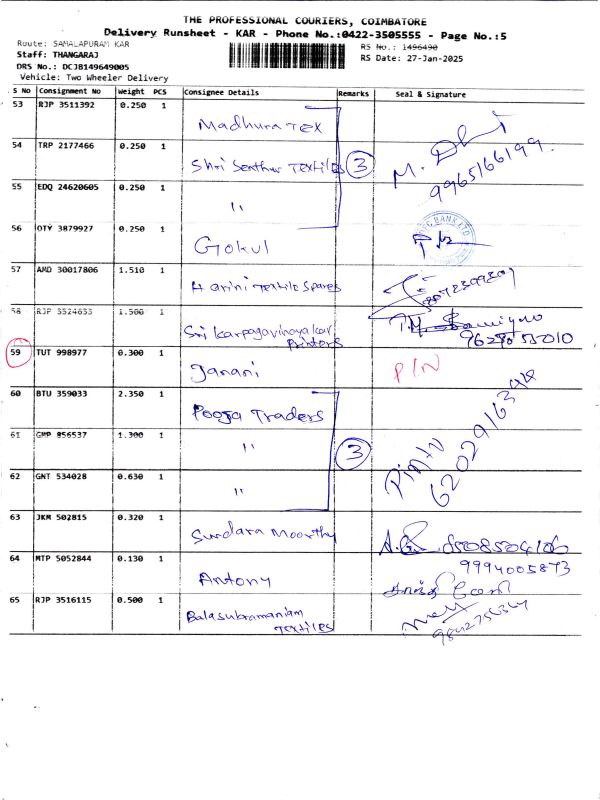 THE PROFESSIONAL COURIERS, COIMBATORE
Delivery Runsheet - KAR - Phone No.:0422-3505555 - Page No.:5
Route: SAMALAPURAM KAR
RS No.: 1496490
Staff: THANGARAJ
RS Date: 27-Jan-2025
DRS No.: DCJB149649005
Vehicle: Two Wheeler Delivery
S No Consignment No Weight PCS Consignee Details Remarks Seal & Signature
53 RJP 3511392 0.250 1 Madhura Tex
54 TRP 2177466 0.250 1 Shri Senthur Textiles 3 M. 9965166199
55 EDQ 24620605 0.250 1 "
56 OTY 3879927 0.250 1 Gokul
57 AMD 30017806 1.510 1 Harini Textile Spares
58 RJP 3524633 1.500 1 Sri Karpagavinayakar Printers
59 TUT 998977 0.300 1 Janani PIN
60 BTU 359033 2.350 1 Pooja Traders
61 GMP 856537 1.300 1 " 3 Pintu
62 GNT 534028 0.630 1 "
63 JKM 502815 0.320 1 Sundara Moorthy
64 MTP 5052844 0.130 1 Antony 9994005873
65 RJP 3516115 0.500 1 Balasubramaniam Textiles